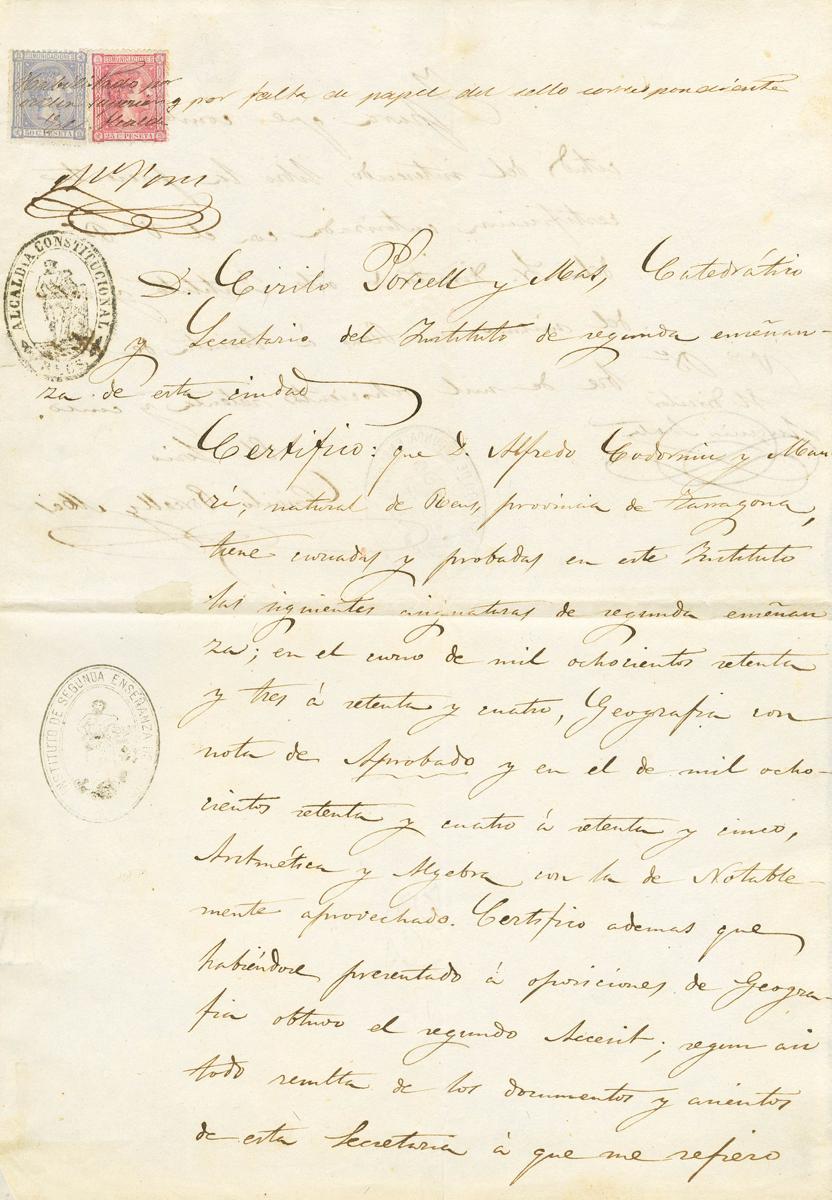 COMUNICACIONES COMUNICACIONES
Habilitado por
orden superior y por falta de papel del sello correspondiente
Alcalde
50 C. PESETA 25 C. PESETA
ALCALDIA CONSTITUCIONAL
REUS
D. Cirilo Porcell y Mas, Catedrático
y Secretario del Instituto de segunda enseñan-
za de esta ciudad
Certifico: que D. Alfredo Codorniu y Mau
ri, natural de Reus, provincia de Tarragona,
tiene cursadas y probadas en este Instituto
las siguientes asignaturas de segunda enseñan
za; en el curso de mil ochocientos setenta
y tres á setenta y cuatro, Geografia con
nota de Aprobado y en el de mil ocho-
cientos setenta y cuatro á setenta y cinco,
Aritmética y Algebra con la de Notable-
mente aprovechado. Certifico ademas que
habiéndose presentado á oposiciones de Geogra-
fia obtuvo el segundo Accesit; segun asi
todo resulta de los documentos y asientos
de esta Secretaria á que me refiero
INSTITUTO DE SEGUNDA ENSEÑANZA DE